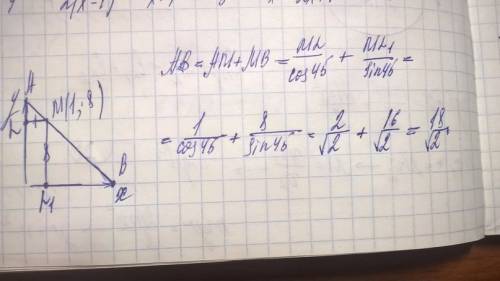 AB = AM + MB = ML/cos45 + ML₁/sin45 =
= 1/cos45 + 8/sin45 = 2/√2 + 16/√2 = 18/√2
y A
M(1; 8)
L 1
8
B
L₁ x